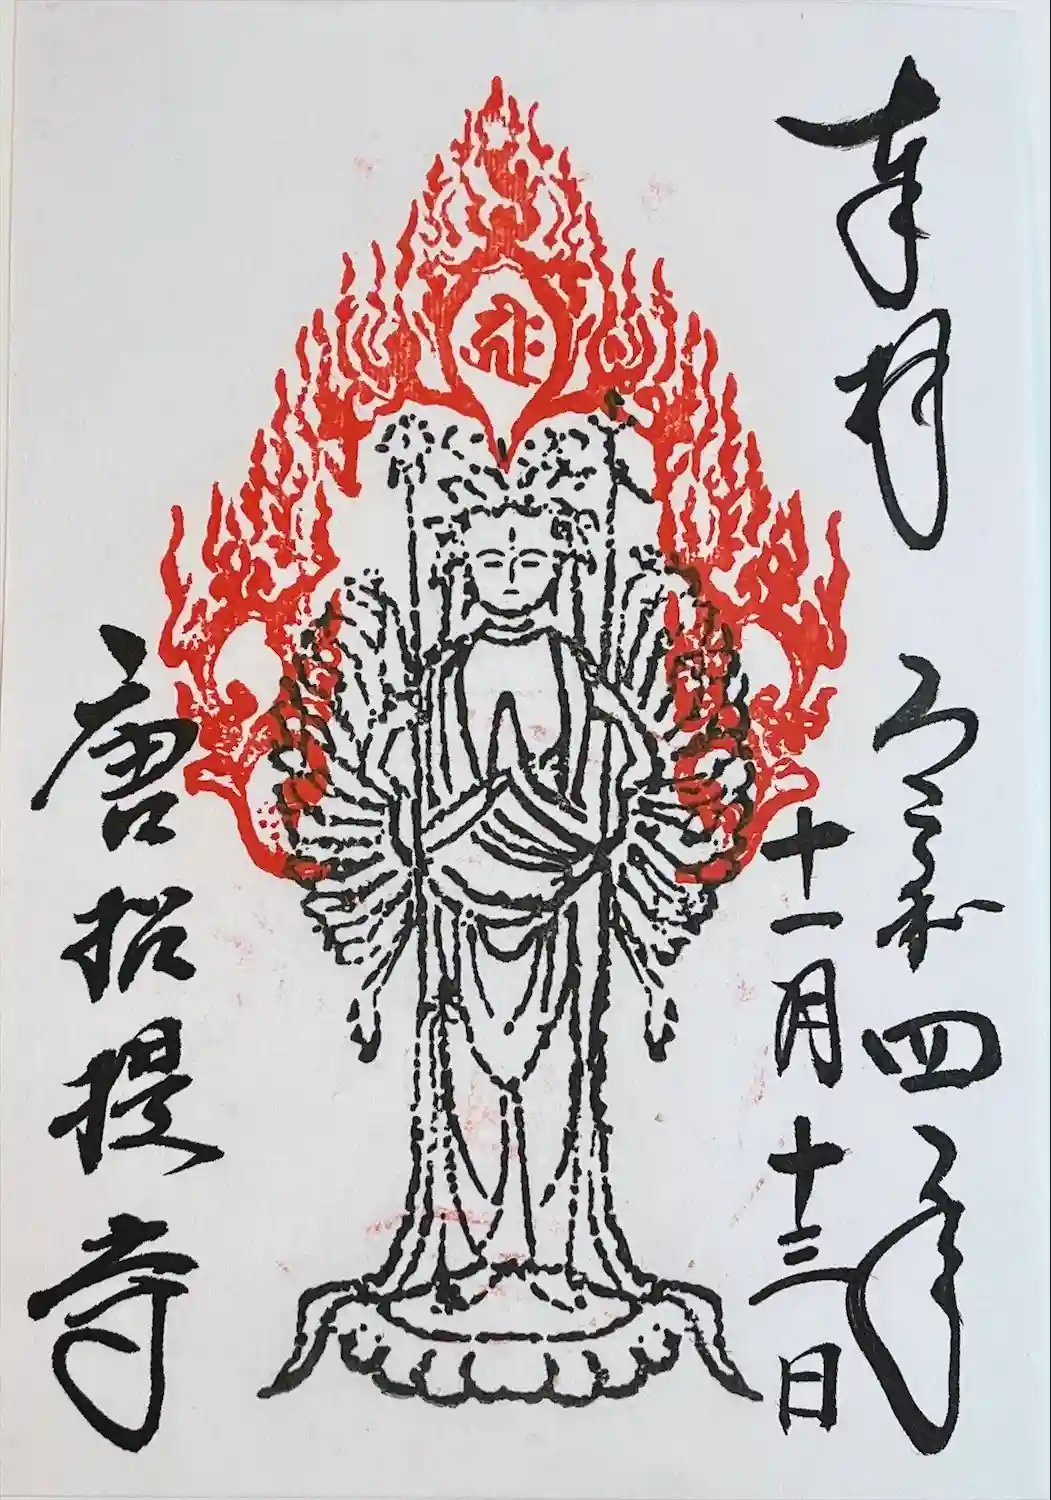 奉拝 令和四年
十一月十三日
唐招提寺